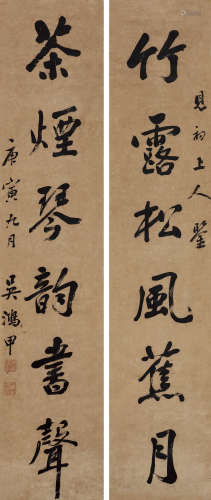 竹露松風蕉月
見初上人鑒
茶煙琴韵書聲
庚寅九月
吳鴻甲